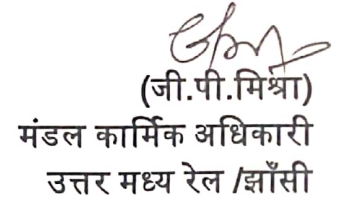 (जी.पी.मिश्रा)
मंडल कार्मिक अधिकारी
उत्तर मध्य रेल /झाँसी